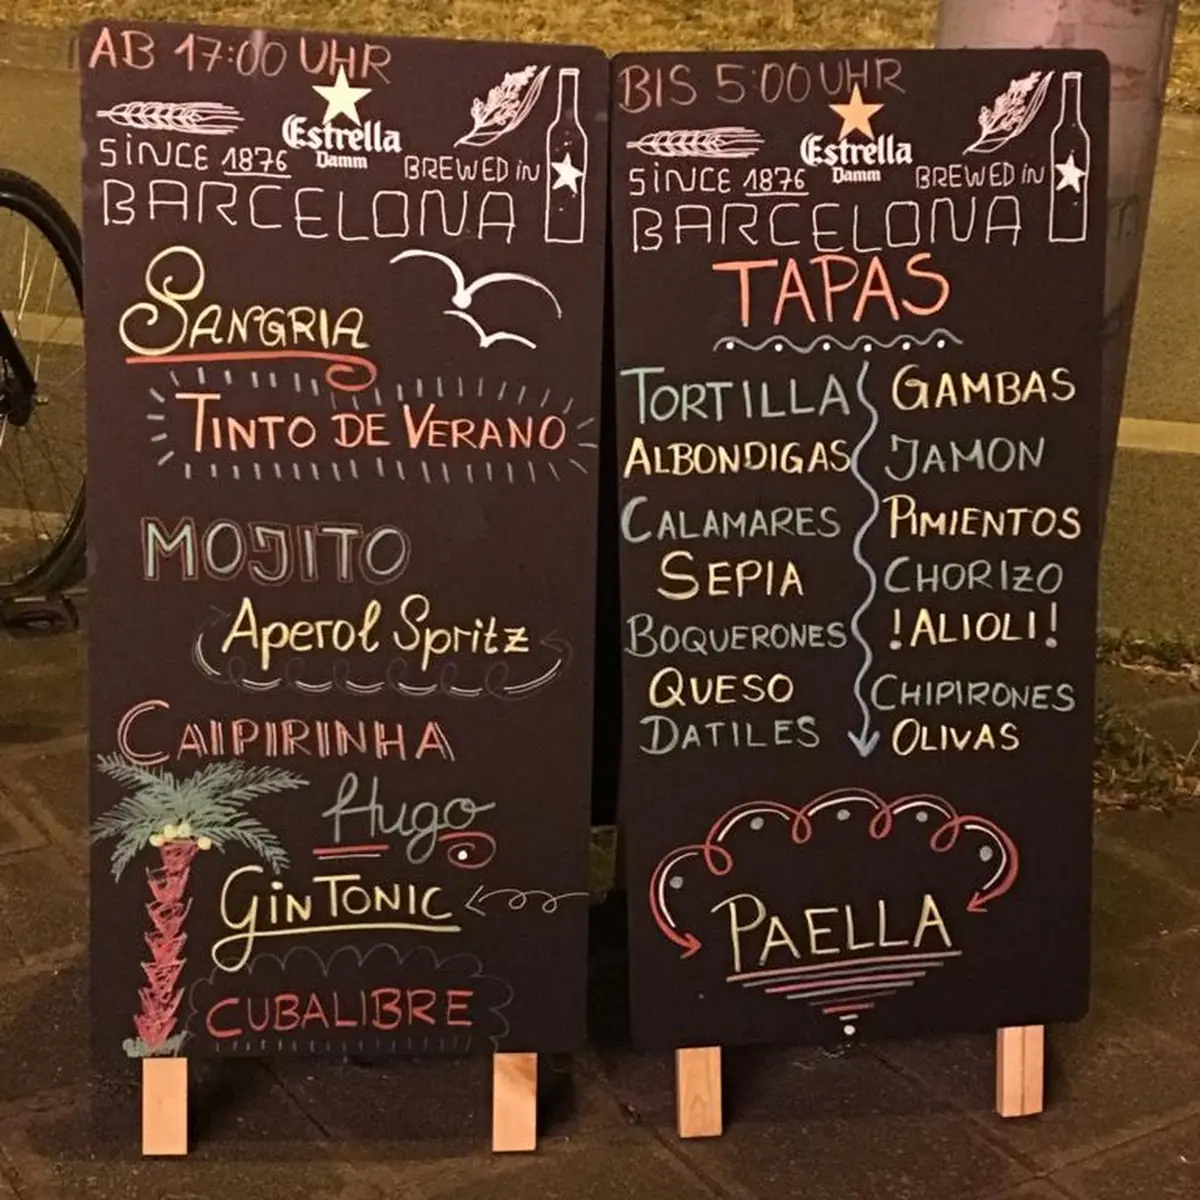 AB 17:00 UHR
Estrella
Damm
SINCE 1876
BREWED IN
BARCELONA
SANGRIA
TINTO DE VERANO
MOJITO
Aperol Spritz
CAIPIRINHA
Hugo
GIN TONIC
CUBALIBRE
BIS 5:00 UHR
Estrella
Damm
SINCE 1876
BREWED IN
BARCELONA
TAPAS
TORTILLA
ALBONDIGAS
CALAMARES
SEPIA
BOQUERONES
QUESO
DATILES
GAMBAS
JAMON
PIMIENTOS
CHORIZO
!ALIOLI!
CHIPIRONES
OLIVAS
PAELLA